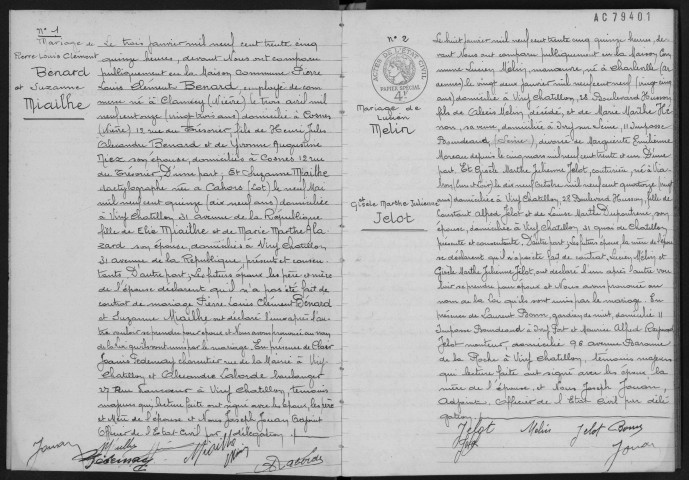 N° 1
Mariage de
Pierre Louis Clément
Benard
et Suzanne
Miailhe
Le trois janvier mil neuf cent trente cinq
quinze heures, devant Nous ont comparu
publiquement en la Maison Commune Pierre
Louis Clément Benard, employé de com
merce né à Clamecy (Nièvre) le trois avril mil
neuf cent onze (vingt trois ans) domicilié à Cosnes
(Nièvre) 12 rue du fils de Henri Jules
Alexandre Benard et de Yvonne Augustine
son épouse, domiciliés à Cosnes 12 rue
du D'une part; Et Suzanne Miailhe
dactylographe née à Cahors (Lot) le neuf Mai
mil neuf cent quinze (dix neuf ans) domiciliée
à Viry Chatillon, 31 avenue de la République
fille de Elie Miailhe et de Marie Marthe Ala
zard son épouse, domiciliés à Viry Chatillon
31 avenue de la République, présents et consen
tants. D'autre part; Les futurs époux les père et mère
de l'épouse déclarent qu'il n'a pas été fait de
contrat de mariage. Pierre Louis Clément Benard
et Suzanne Miailhe ont déclaré l'un après l'au
tre vouloir se prendre pour époux et Nous avons prononcé au nom
de la Loi qu'ils sont unis par le mariage. En présence de
charcutier rue de la Mairie à Viry
Chatillon et Alexandre Laborde boulanger
27 Rue à Viry Chatillon, témoins
majeurs qui, lecture faite ont signé avec les époux, les père
et Mère de l'épouse et Nous Joseph Jouan Adjoint
Officier de l'Etat Civil par délégation.
Jouan Miailhe
AC79401
N° 2
ACTES DE L'ÉTAT CIVIL
PAPIER SPÉCIAL
4F
Mariage de
Lucien
Melin
et
Gisèle Marthe Julienne
Jelot
Le huit janvier mil neuf cent trente cinq quinze heures, de
vant Nous ont comparu publiquement en la Maison Com
mune Lucien Melin, manœuvre, né à Charleville (Ar
dennes) le vingt deux janvier mil neuf cent neuf (vingt cinq
ans) domicilié à Viry Chatillon, 28 Boulevard Husson,
fils de Melin, décédé, et de Marie Marthe
sa veuve, domiciliée à Ivry sur Seine, 11 Impasse
(Seine), divorcé de Marguerite Emilienne
Moreau depuis le cinq mai mil neuf cent trente et un D'une
part. Et Gisèle Marthe Julienne Jelot, couturière, née à
le dix neuf Octobre mil neuf cent quatorze (vingt
ans) domiciliée à Viry Chatillon, 28 Boulevard Husson, fille de
Constant Alfred Jelot et de Louise Marthe son
épouse, domiciliés à Viry Chatillon 31 quai de Chatillon,
présente et consentante. D'autre part; Les futurs époux, la mère de l'épou
se déclarent qu'il n'a pas été fait de contrat. Lucien Melin et
Gisèle Marthe Julienne Jelot, ont déclaré l'un après l'autre vou
loir se prendre pour époux et Nous avons prononcé au
nom de la Loi qu'ils sont unis par le mariage. En
présence de Laurent gardien de nuit, domicilié 11
Impasse à Ivry Port et Maurice Alfred Raymond
Jelot monteur, domicilié 96 avenue
de la Roche à Viry Chatillon, témoins majeurs
qui lecture faite ont signé avec les époux la
mère de l'épouse, et Nous Joseph Jouan,
Adjoint. Officier de l'Etat Civil par délé
gation.
Jelot Melin Jelot
Jouan